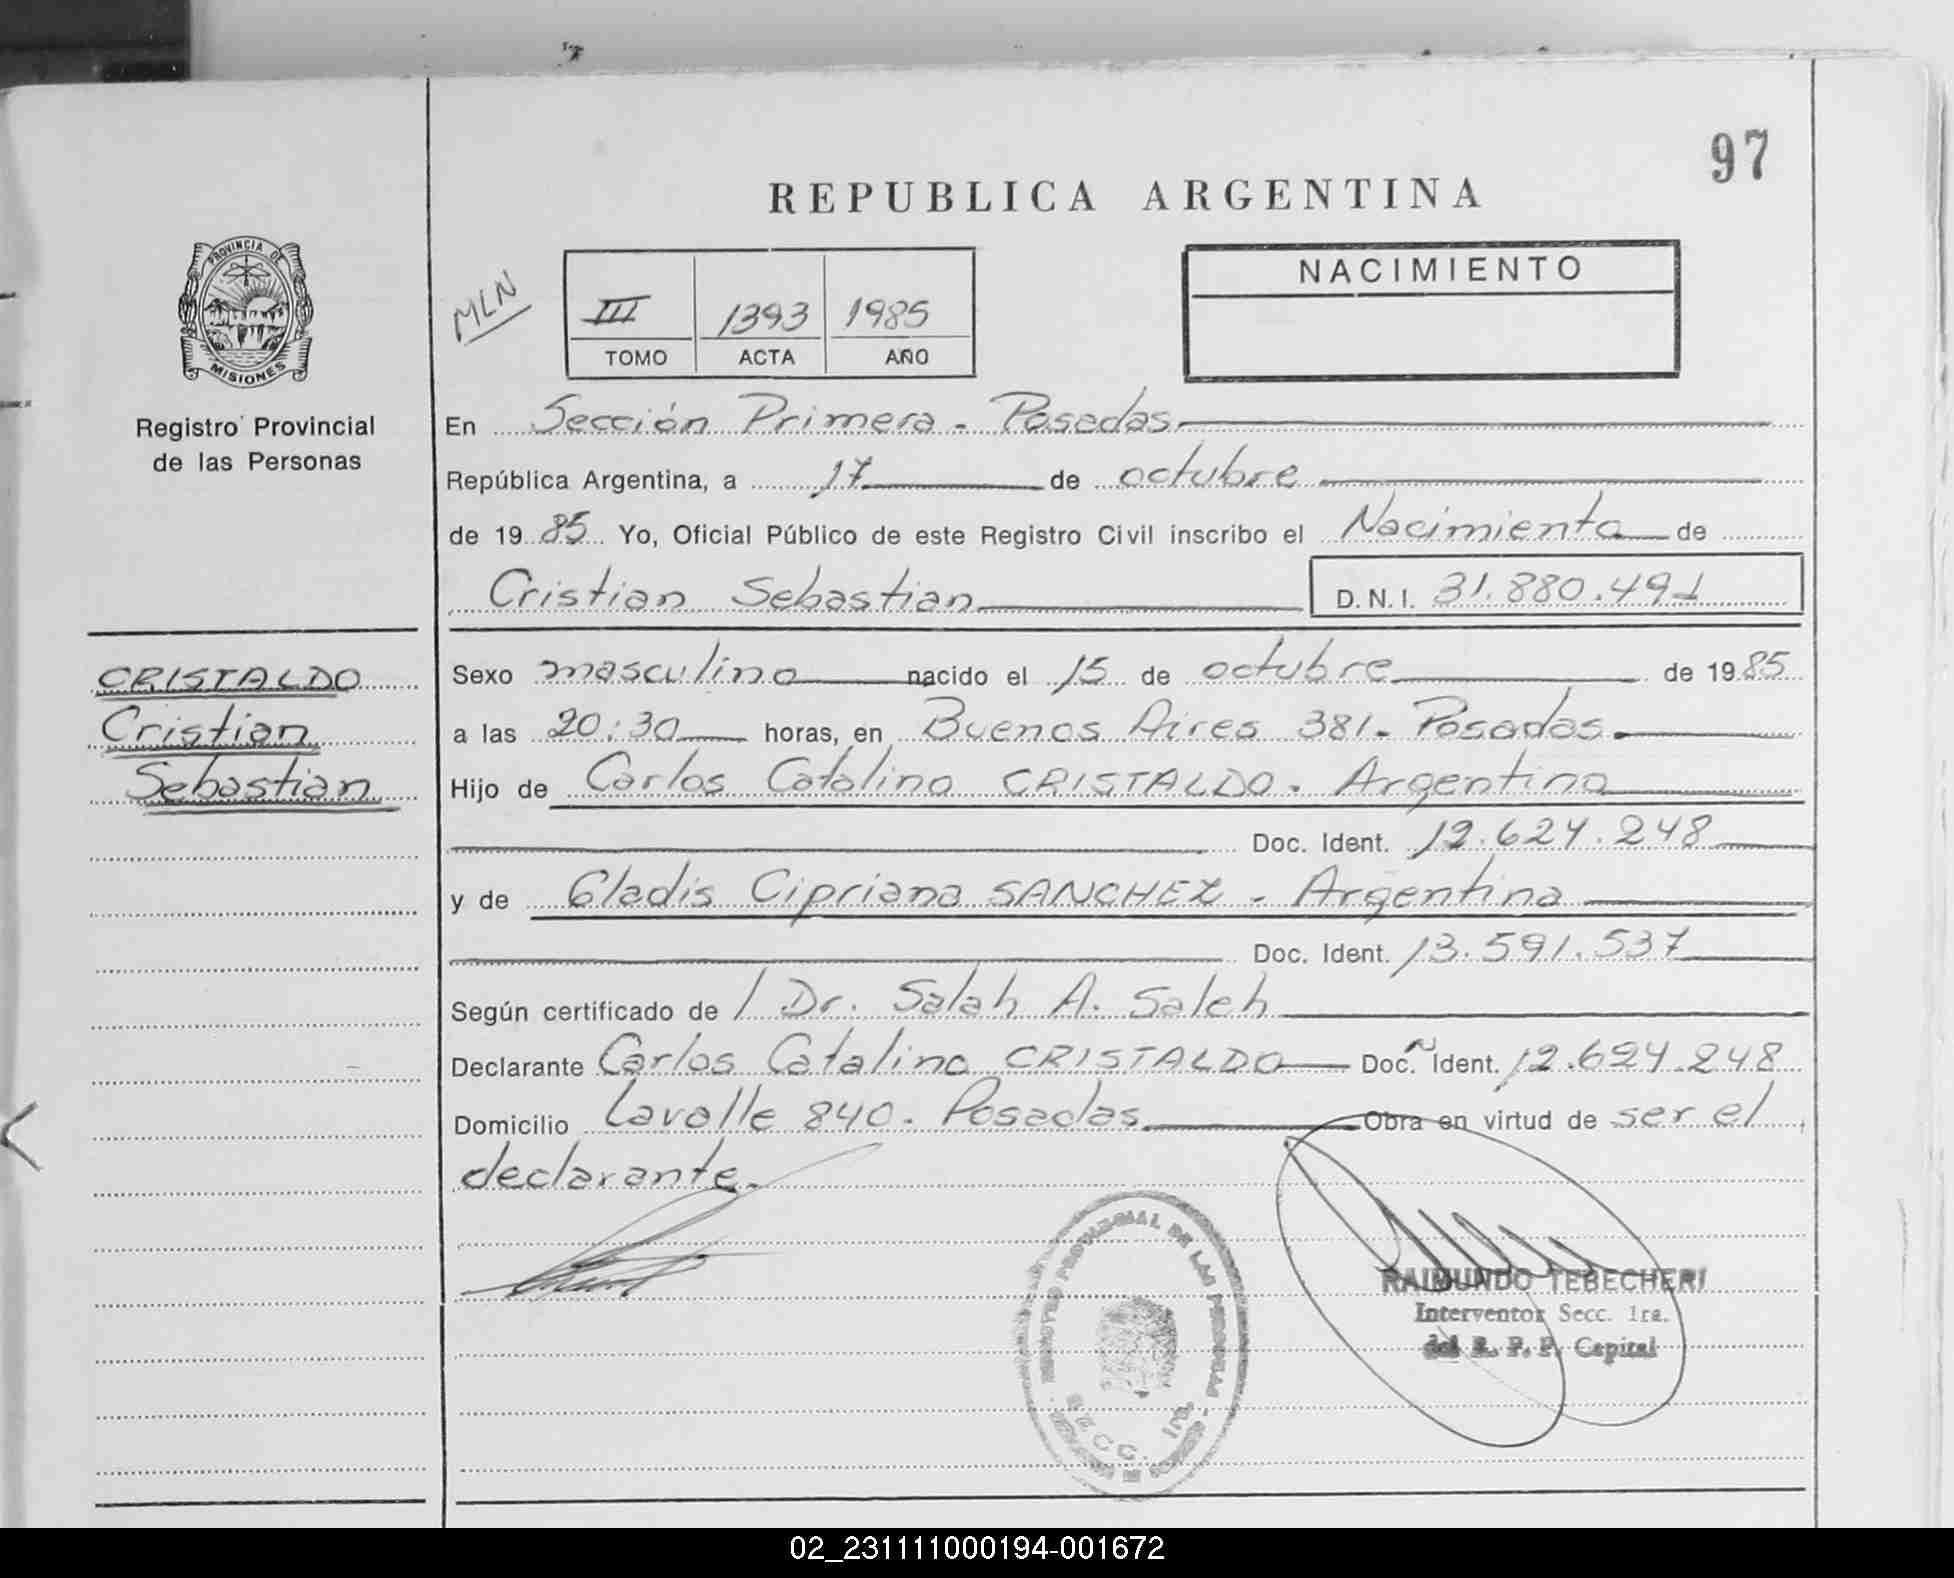 97
REPUBLICA ARGENTINA
PROVINCIA DE
MISIONES
Registro Provincial
de las Personas
MLN
III 1393 1985
TOMO ACTA AÑO
NACIMIENTO
En Sección Primera - Posadas
República Argentina, a 17 de octubre
de 1985 Yo, Oficial Público de este Registro Civil inscribo el Nacimiento de
Cristian Sebastian D.N.I. 31.880.491
CRISTALDO
Cristian
Sebastian
Sexo masculino nacido el 15 de octubre de 1985
a las 20:30 horas, en Buenos Aires 381. Posadas.
Hijo de Carlos Catalino CRISTALDO. Argentino
Doc. Ident. 12.624.248
y de Gladis Cipriana SANCHEZ - Argentina
Doc. Ident. 13.591.537
Según certificado de / Dr. Salah A. Saleh
Declarante Carlos Catalino CRISTALDO Doc. Ident. 12.624.248
Domicilio Lavalle 840. Posadas. Obra en virtud de ser el
declarante.
REGISTRO PROVINCIAL DE LAS PERSONAS
SECC. 1ra.
RAIMUNDO TEBECHERI
Interventor Secc. 1ra.
del R. P. P. Capital
02_231111000194-001672